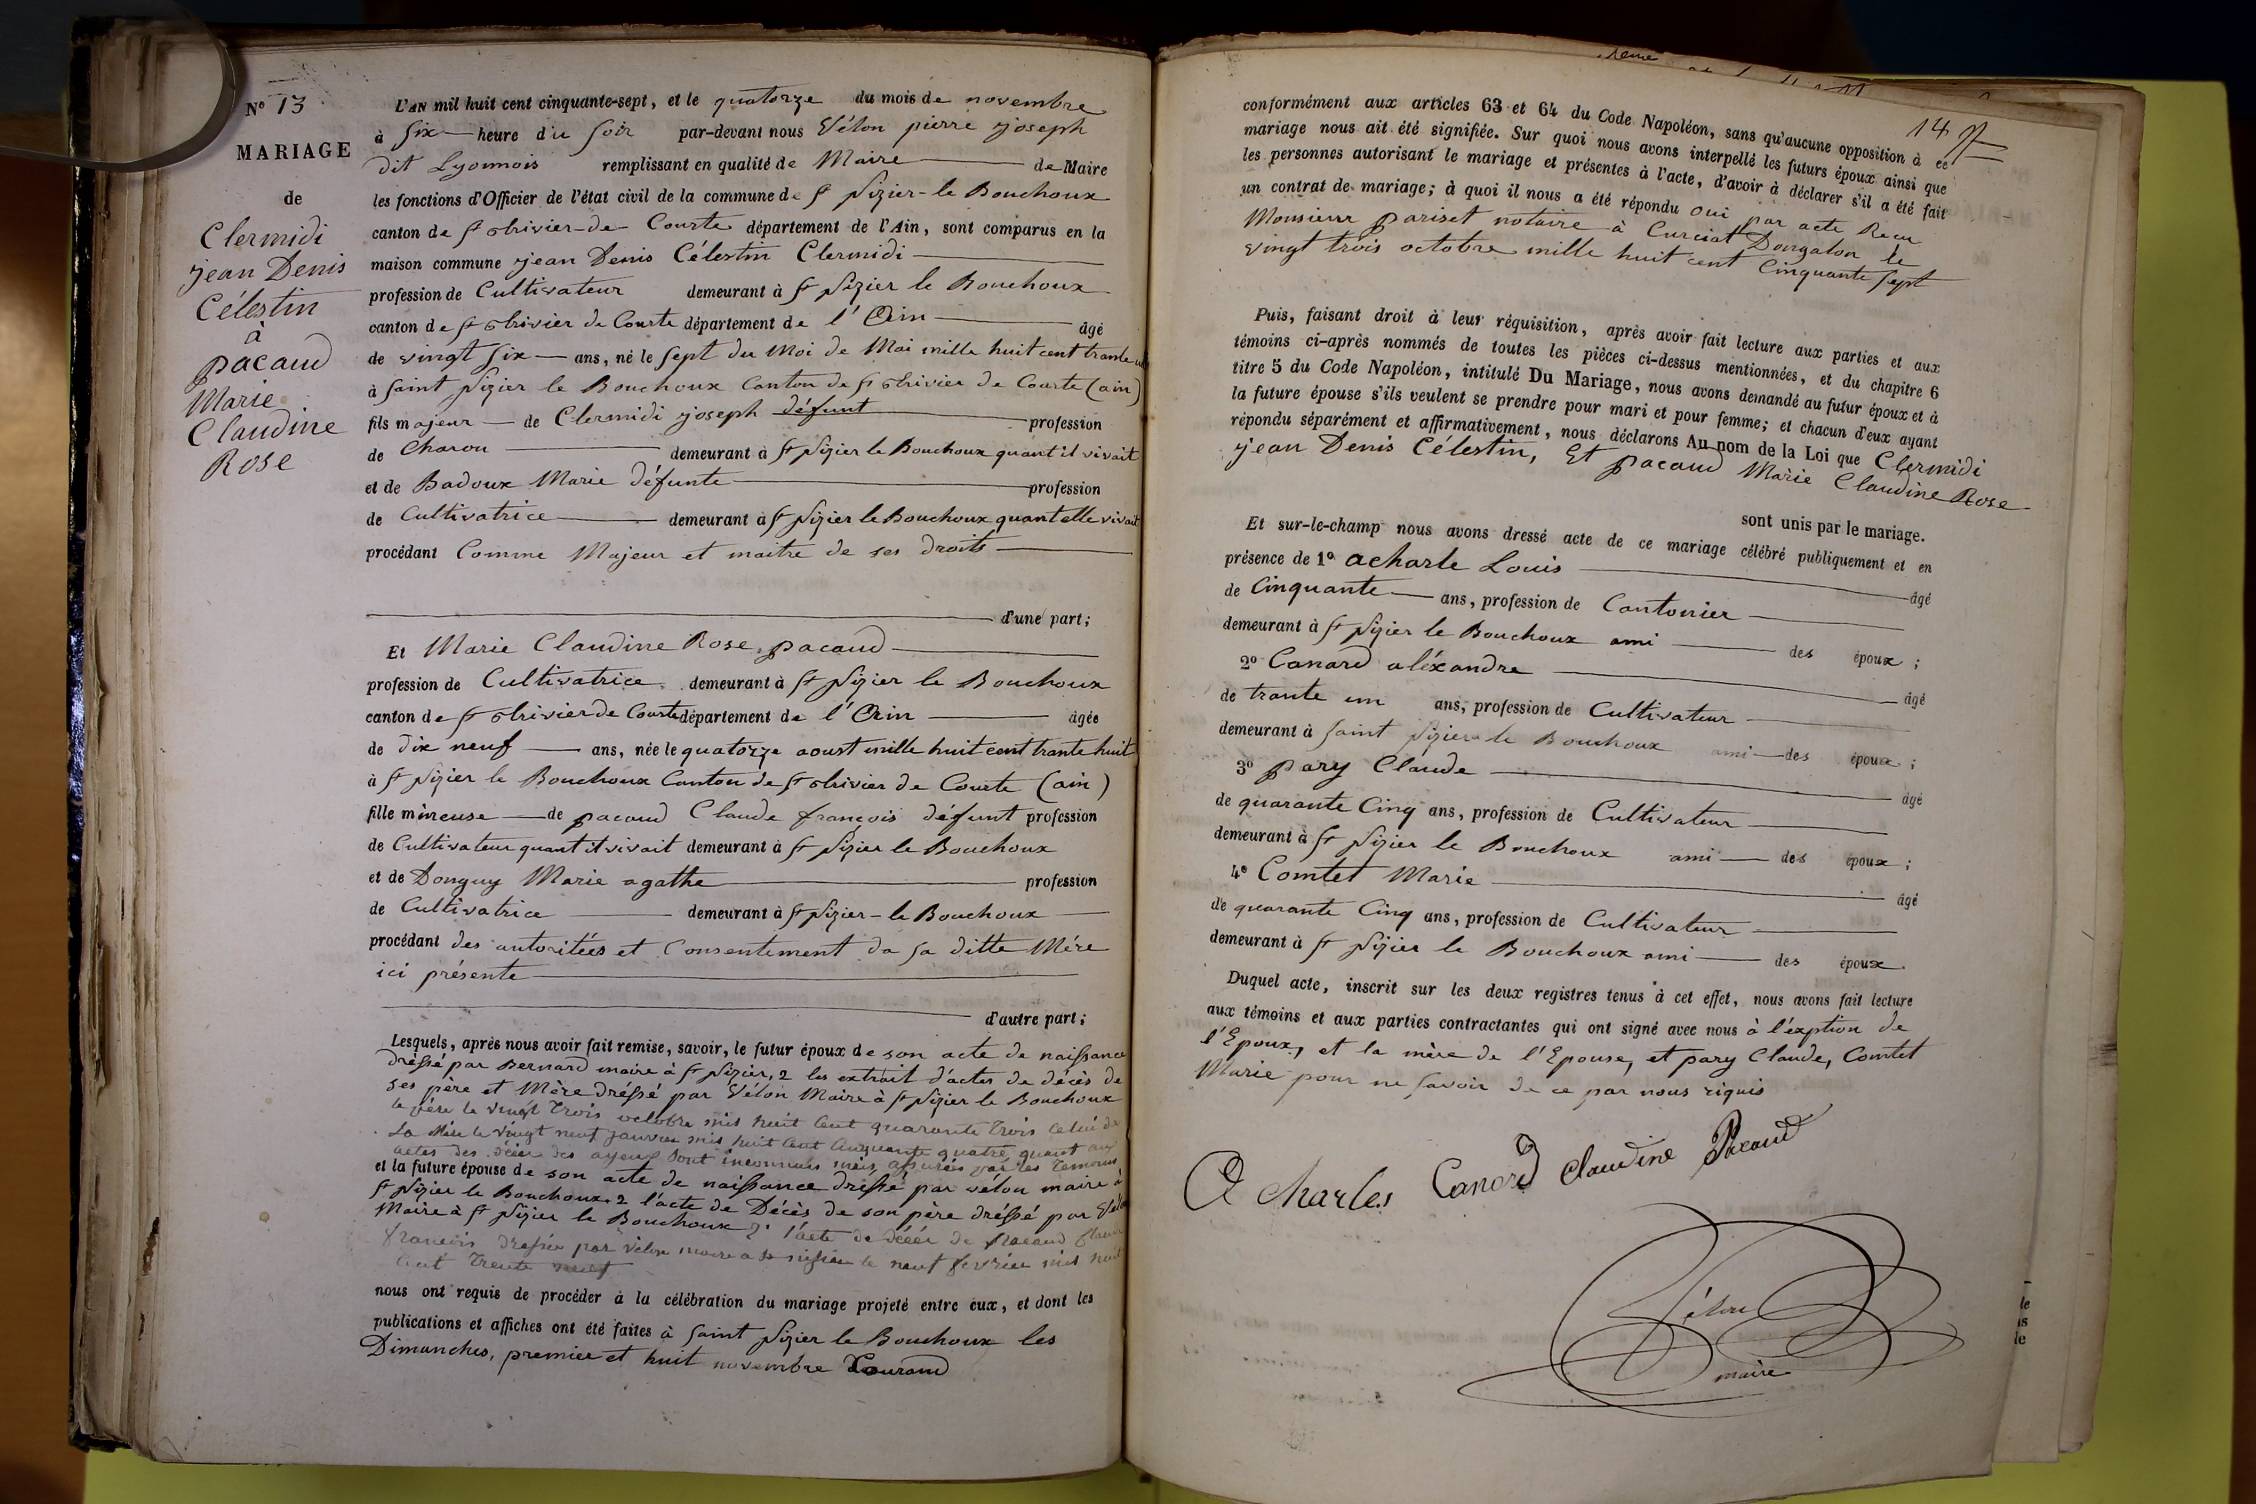 N° 13
MARIAGE
de
Clermidi
jean Denis
Célestin
à
pacaud
Marie
Claudine
Rose
L'AN mil huit cent cinquante-sept, et le quatorze du mois de novembre
à Six heure du Soir par-devant nous Vélon pierre joseph
dit Lyonnois remplissant en qualité de Maire de Maire
les fonctions d'Officier de l'état civil de la commune de St Nizier-le Bouchoux
canton de St trivier-de Courte département de l'Ain, sont comparus en la
maison commune jean Denis Célestin Clermidi
profession de Cultivateur demeurant à St Nizier le Bouchoux
canton de St trivier de Courte département de l'Ain âgé
de vingt Six ans, né le Sept du Moi de Mai mille huit cent trante un
à Saint Nizier le Bouchoux Canton de St trivier de Courte (ain)
fils majeur de Clermidi joseph défunt profession
de Charon demeurant à St Nizier le Bouchoux quant il vivait
et de Badoux Marie défunte profession
de Cultivatrice demeurant à St Nizier le Bouchoux quant elle vivait
procédant Comme Majeur et maitre de ses droits
d'une part;
Et Marie Claudine Rose pacaud
profession de Cultivatrice demeurant à St Nizier le Bouchoux
canton de St trivier de Courte département de l'Ain âgée
de dix neuf ans, née le quatorze aoust mille huit cent trante huit
à St Nizier le Bouchoux Canton de St trivier de Courte (ain)
fille mineuse de pacaud Claude françois défunt profession
de Cultivateur quant il vivait demeurant à St Nizier le Bouchoux
et de Donguy Marie agathe profession
de Cultivatrice demeurant à St Nizier-le Bouchoux
procédant des autoritées et Consentement da sa ditte Mére
ici présente
d'autre part;
Lesquels, après nous avoir fait remise, savoir, le futur époux de son acte de naissance
dréssé par Bernard maire à St Nizier, 2 les extrait d'actes de décès de
ses père et Mère dréssé par Vélon Maire à St Nizier le Bouchoux
le père le vingt trois octobre mis huit Cent quarante trois celui de
La Mère le vingt neuf janvier mis huit Cent Cinquante quatre quant aux
actes des décès des ayeux Sont inconnus mais assurés par les temoins
et la future épouse de son acte de naissance dréssé par vélon maire à
St Nizier le Bouchoux 2 l'acte de Décès de son père dréssé par Vélon
Maire à St Nizier le Bouchoux l'acte de décés de Pacaud
françois par vélon maire a St le neuf fevrier mis huit
Cent trente neuf
nous ont requis de procéder à la célébration du mariage projeté entre eux, et dont les
publications et affiches ont été faites à Saint Nizier le Bouchoux les
Dimanches, premier et huit novembre Courand
14
conformément aux articles 63 et 64 du Code Napoléon, sans qu'aucune opposition à ce
mariage nous ait été signifiée. Sur quoi nous avons interpellé les futurs époux ainsi que
les personnes autorisant le mariage et présentes à l'acte, d'avoir à déclarer s'il a été fait
un contrat de mariage; à quoi il nous a été répondu oui par acte Recu
Monsieur pariset notaire à Curciat Dongalon le
vingt trois octobre mille huit cent Cinquante Sept
Puis, faisant droit à leur réquisition, après avoir fait lecture aux parties et aux
témoins ci-après nommés de toutes les pièces ci-dessus mentionnées, et du chapitre 6
titre 5 du Code Napoléon, intitulé Du Mariage, nous avons demandé au futur époux et à
la future épouse s'ils veulent se prendre pour mari et pour femme; et chacun d'eux ayant
répondu séparément et affirmativement, nous déclarons Au nom de la Loi que Clermidi
jean Denis Célestin, Et pacaud Marie Claudine Rose
sont unis par le mariage.
Et sur-le-champ nous avons dressé acte de ce mariage célébré publiquement et en
présence de 1° acharle Louis âgé
de Cinquante ans, profession de Cantonier
demeurant à St Nizier le Bouchoux ami des époux;
2° Canard aléxandre âgé
de trante un ans, profession de Cultivateur
demeurant à Saint Nizier le Bouchoux ami des époux;
3° pary Claude âgé
de quarante Cinq ans, profession de Cultivateur
demeurant à St Nizier le Bouchoux ami des époux;
4° Comtet Marie âgé
de quarante Cinq ans, profession de Cultivateur
demeurant à St Nizier le Bouchoux ami des époux.
Duquel acte, inscrit sur les deux registres tenus à cet effet, nous avons fait lecture
aux témoins et aux parties contractantes qui ont signé avec nous à l'éxption de
l'Epoux, et la mère de l'Epouse, et pary Claude, Comtet
Marie pour ne Savoir de ce par nous riquis
A charles Canard Claudine Pacaud
Vélon
maire